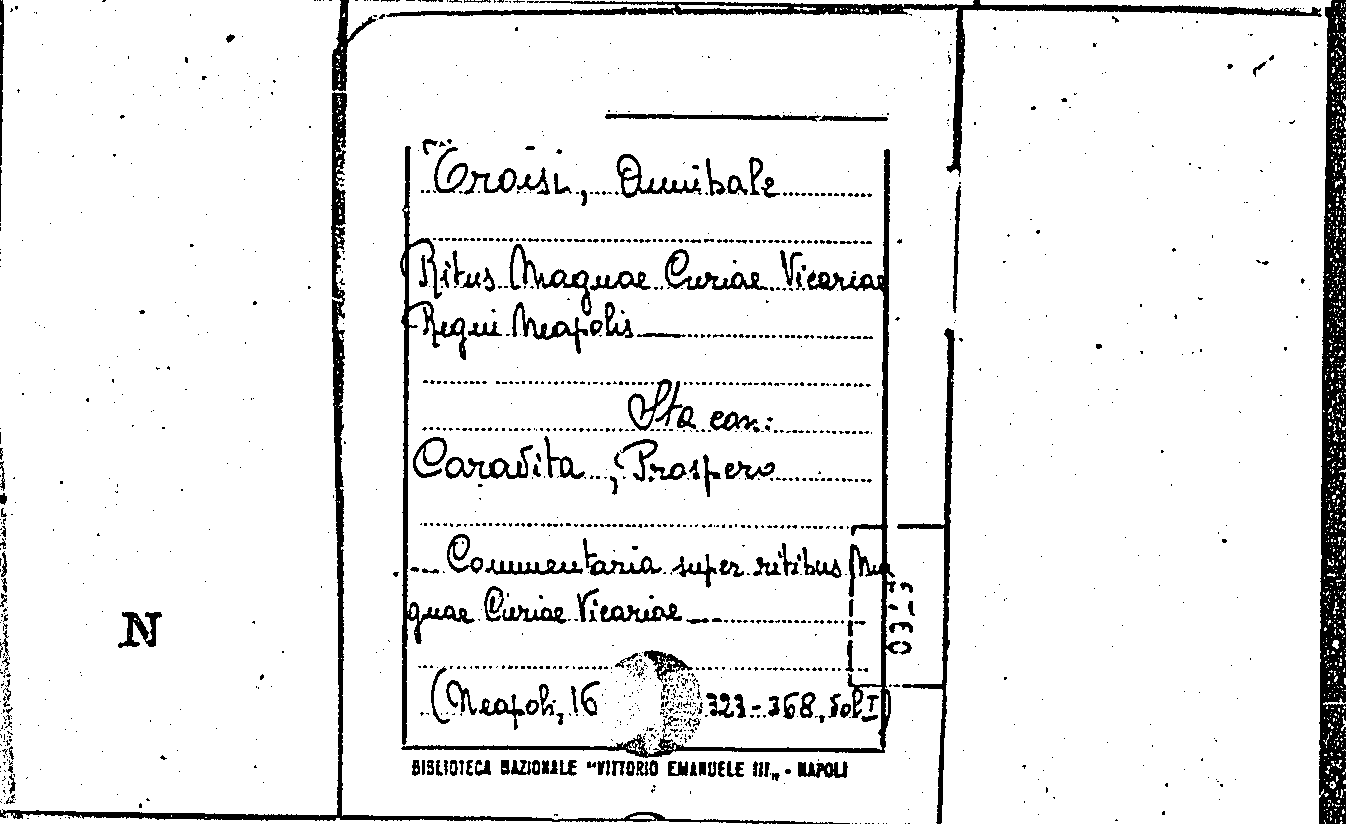 Troisi, Annibale
Ritus Magnae Curiae Vicariae
Regni Neapolis
Sta con:
Caravita, Prospero
Commentaria super ritibus Ma
gnae Curiae Vicariae
(Neapoli, 16 323-368, vol I)
BIBLIOTECA NAZIONALE "VITTORIO EMANUELE III" - NAPOLI
N